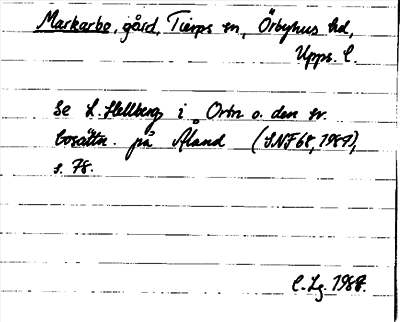 Markarbo, gård, Tierps sn, Örbyhus hd,
Upps. l.
Se L. Hellberg i Ortn o. den sv.
bosättn. på Åland (SNF 68, 1987),
s. 78.
C. Lg. 1988.